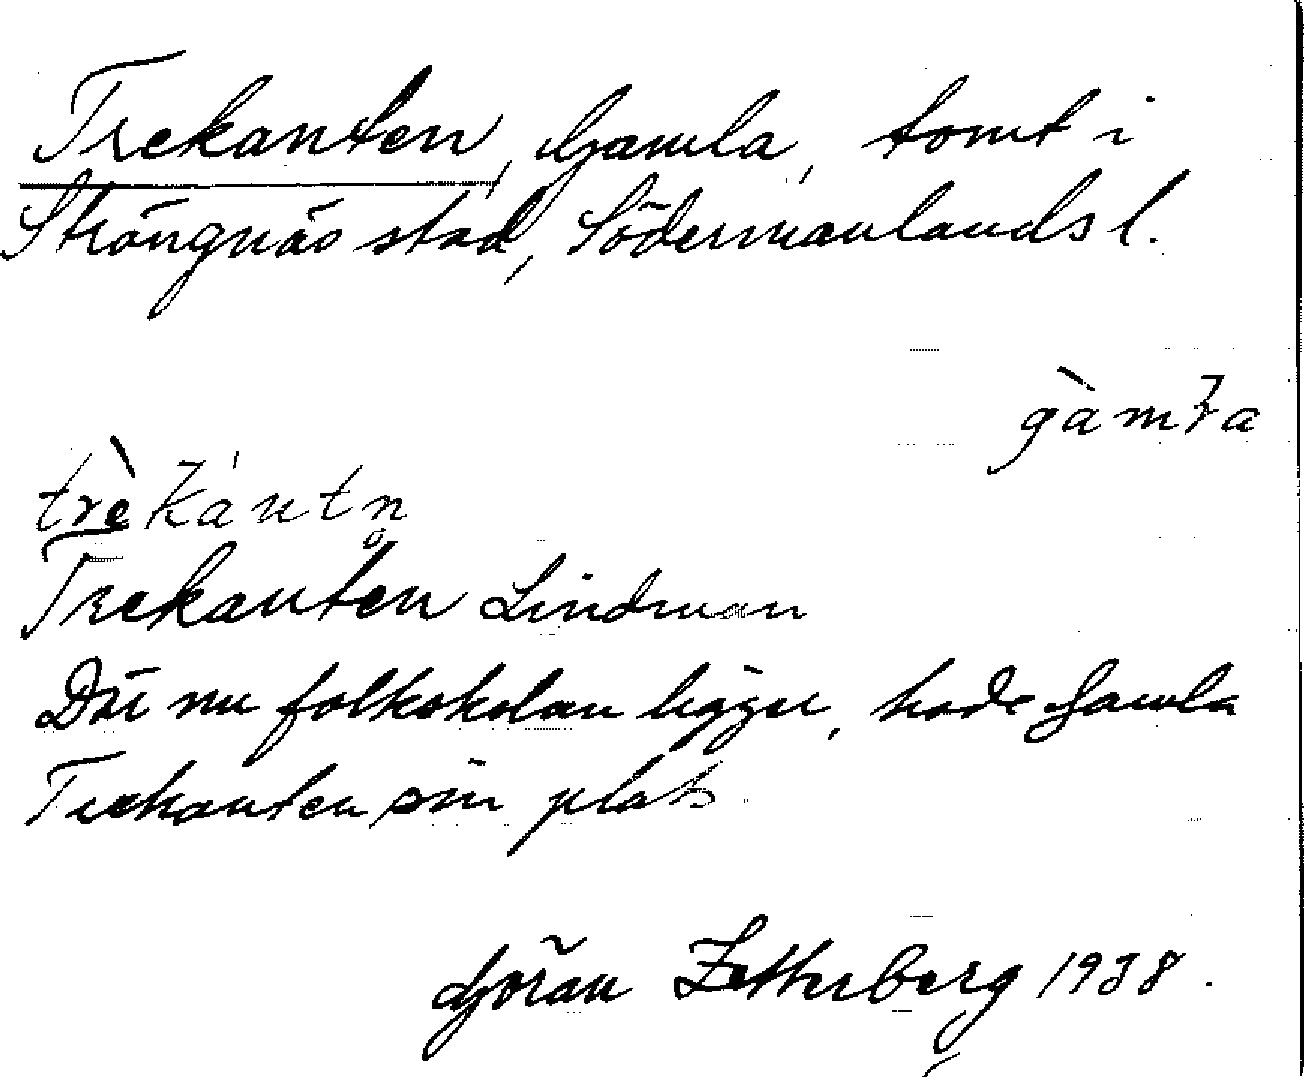 Trekanten, Gamla, tomt i
Strängnäs stad, Södermanlands l.
gàmla
trèkántn̥
Trekanten Lindman
Där nu folkskolan ligger, hade Gamla
Trekanten sin plats
Göran Zetterberg 1938.